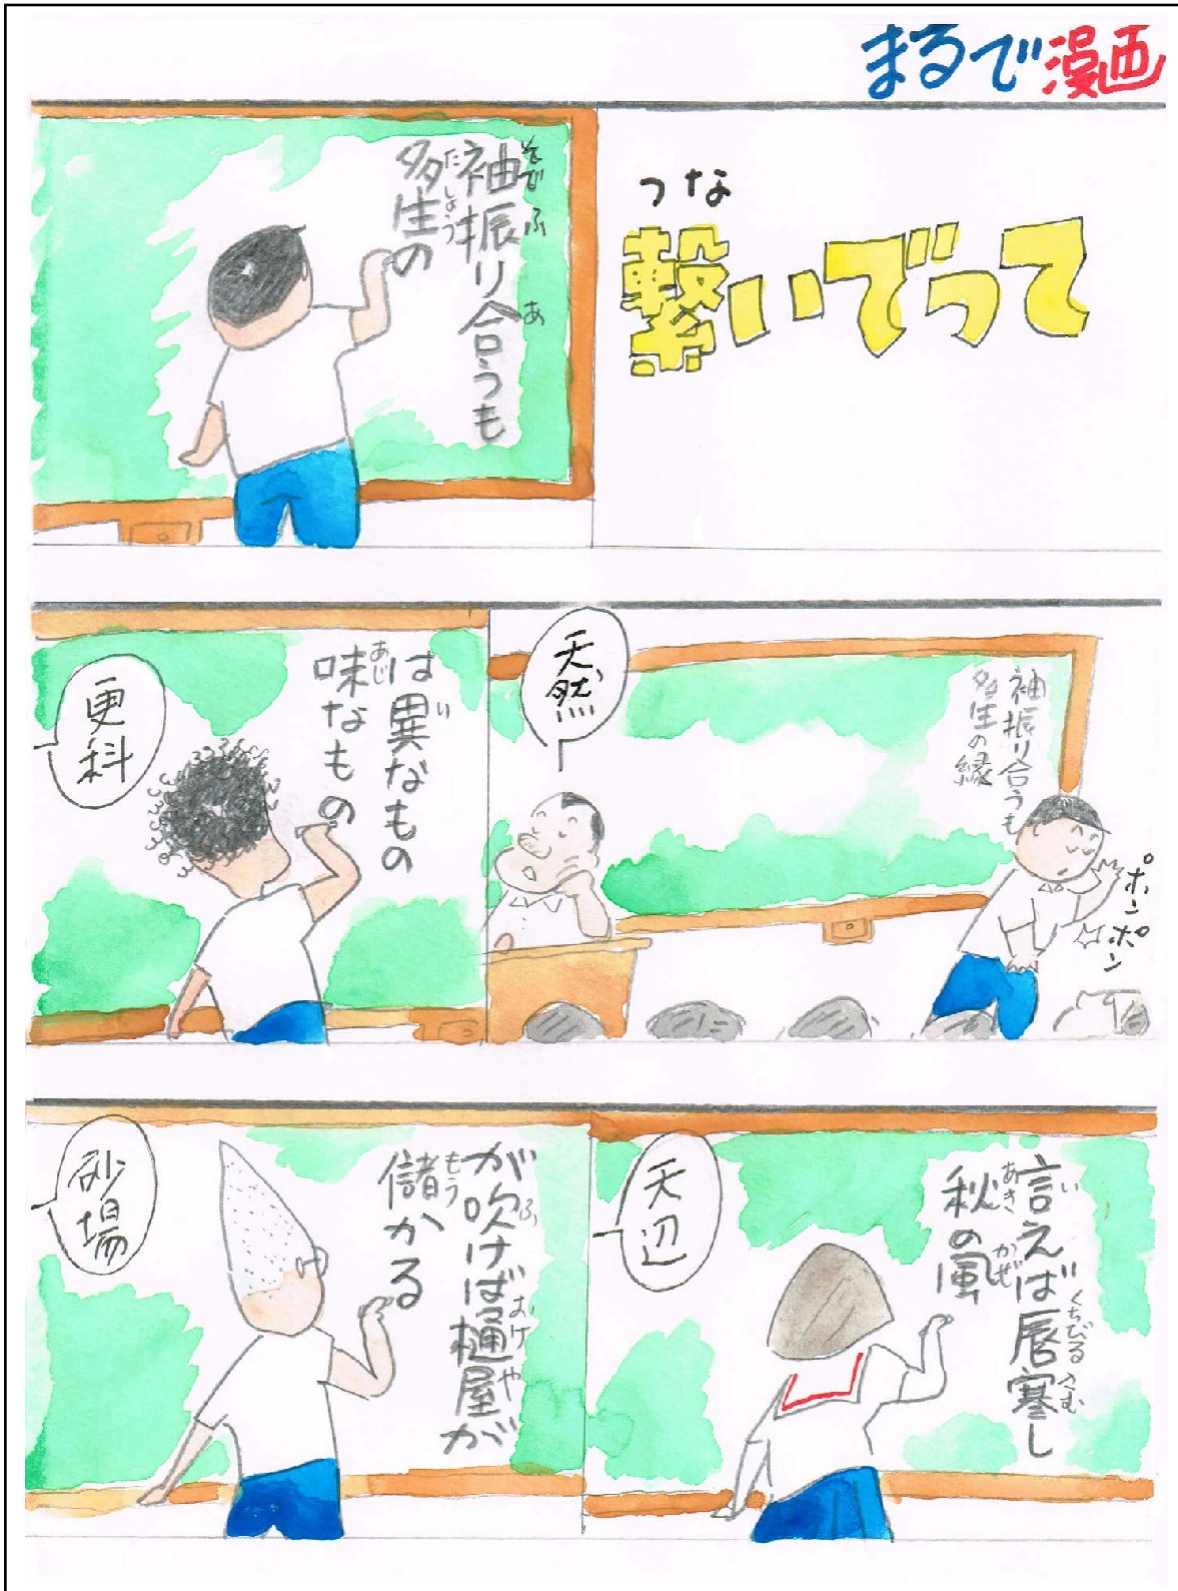 まるで漫画
つな
繋いでって
そでふあ
袖振り合うも
たしょう
多生の
天然
袖振り合うも
多生の縁
ポンポン
い
は異なもの
あじ
味なもの
更科
いくちびるさむ
言えば唇寒し
あきかぜ
秋の風
天辺
ふおけや
が吹けば樋屋が
もう
儲かる
砂場